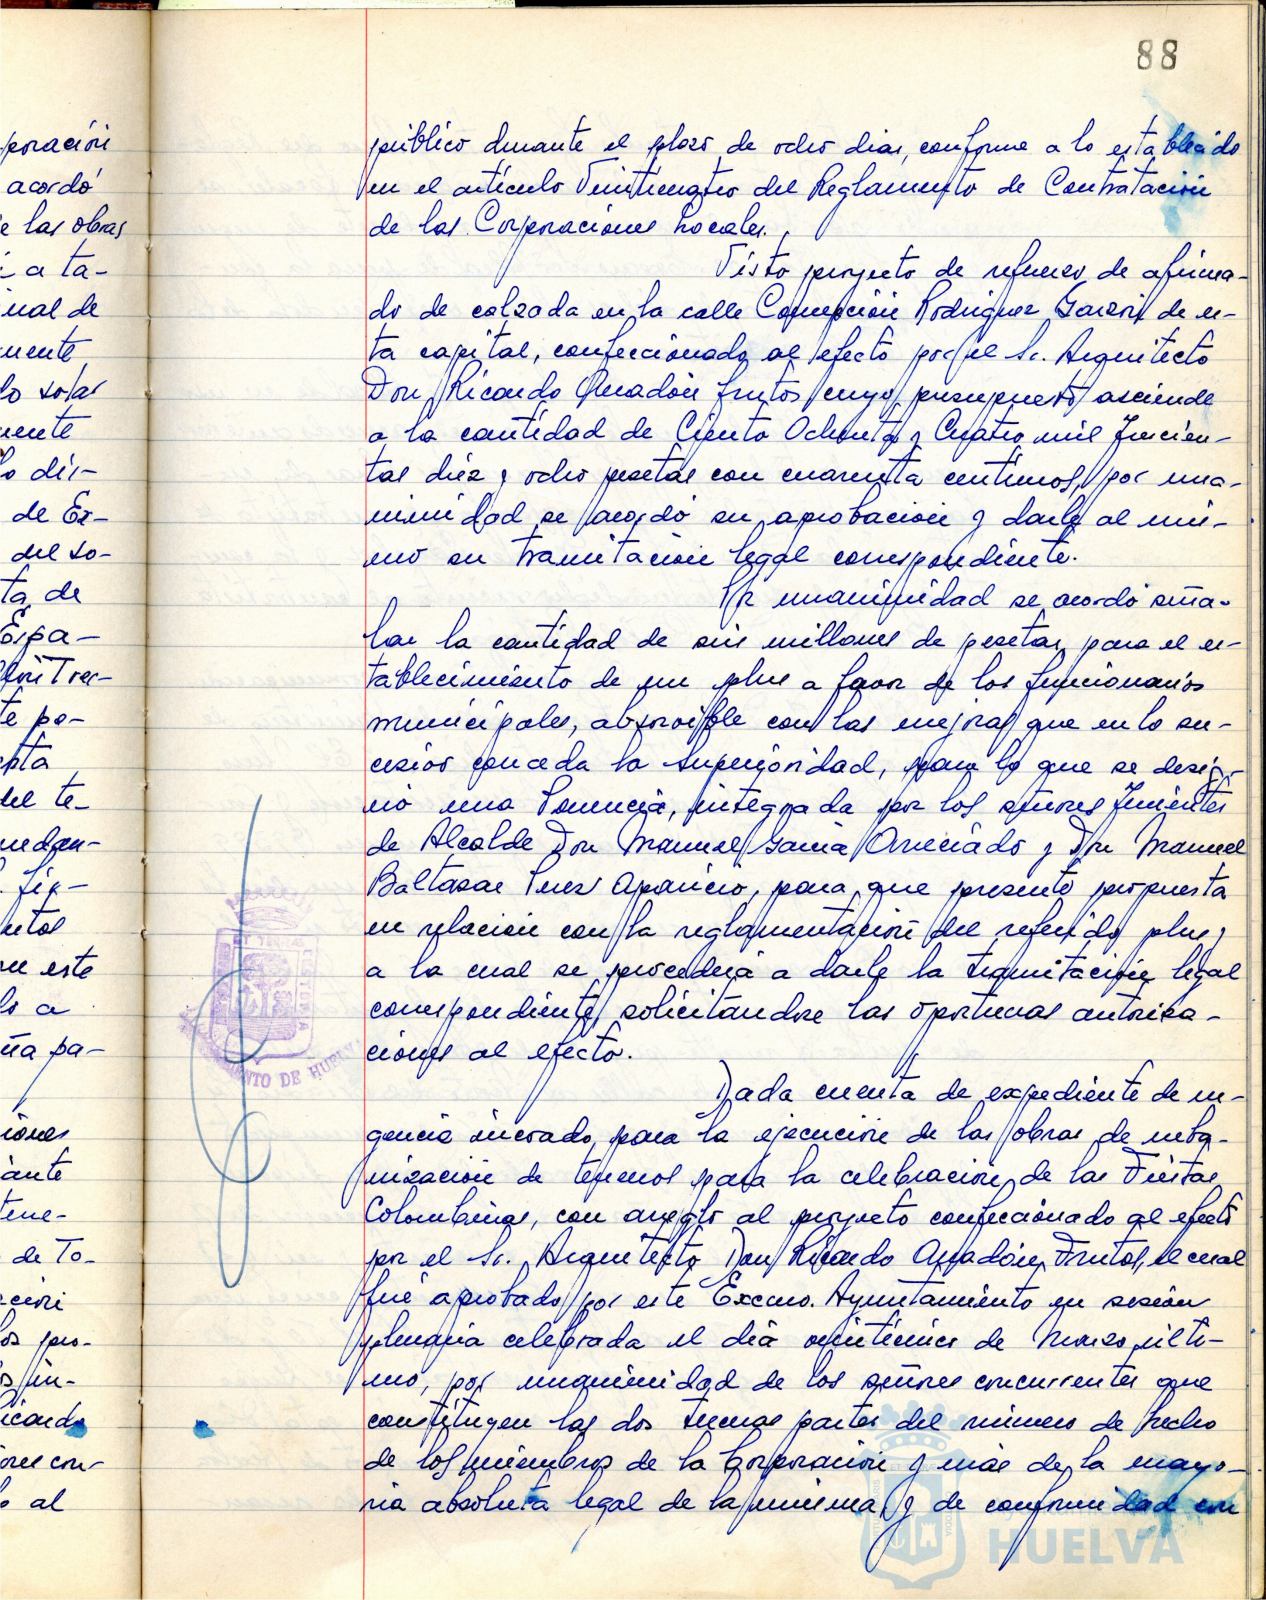 88
público durante el plazo de ocho dias, conforme a lo establecido
en el artículo Veinticuatro del Reglamento de Contratación
de las Corporaciones Locales.
Visto proyecto de refuerzo de afirma-
do de calzada en la calle Concepción Rodriguez Garzón de es-
ta capital, confeccionado al efecto por el Sr. Arquitecto
Don Ricardo Anadón Frutos cuyo presupuesto asciende
a la cantidad de Ciento Ochenta y Cuatro mil Trescien-
tas diez y ocho pesetas con cuarenta centimos, por una-
nimidad se acordó su aprobación y darle al mis-
mo su tramitación legal correspondiente.
Por unanimidad se acordó seña-
lar la cantidad de seis millones de pesetas para el es-
tablecimiento de un plus a favor de los funcionarios
municipales, absorvible con las mejoras que en lo su-
cesivo conceda la Superioridad, para lo que se desig-
nó una Ponencia, integrada por los señores Tenientes
de Alcalde Don Manuel Garcia y Don Manuel
Baltasar Perez Aparicio, para que presente propuesta
en relación con la reglamentación del referido plus,
a la cual se procederá a darle la tramitación legal
correspondiente, solicitándose las oportunas autoriza-
ciones al efecto.
Dada cuenta de expediente de ur-
gencia incoado, para la ejecución de las obras de urba-
nización de terrenos para la celebración de las Fiestas
Colombinas, con arreglo al proyecto confeccionado al efecto
por el Sr. Arquitecto Don Ricardo Anadón Frutos, el cual
fué aprobado por este Excmo. Ayuntamiento en sesión
plenaria celebrada el día de Marzo últi-
mo, por unanimidad de los señores concurrentes que
constituyen las dos terceras partes del número de hecho
de los miembros de la Corporación y más de la mayo-
ria absoluta legal de la misma, y de conformidad con
poración
acordó
e las obras
a ta-
ual de
mente
lo solar
mente
lo dis-
de Ex-
del so-
ta de
Espa-
Tres-
te po-
del te-
quedan-
fig-
este
a
pa-
iones
iante
tene-
de To-
ción
los pro-
in-
icardo
ores con-
al
AYUNTAMIENTO DE HUELVA
HUELVA